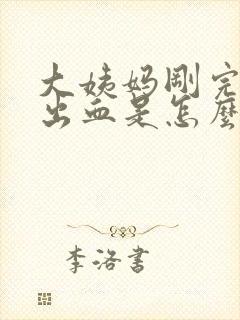 大姨妈刚完
出血是怎麼
李洛書